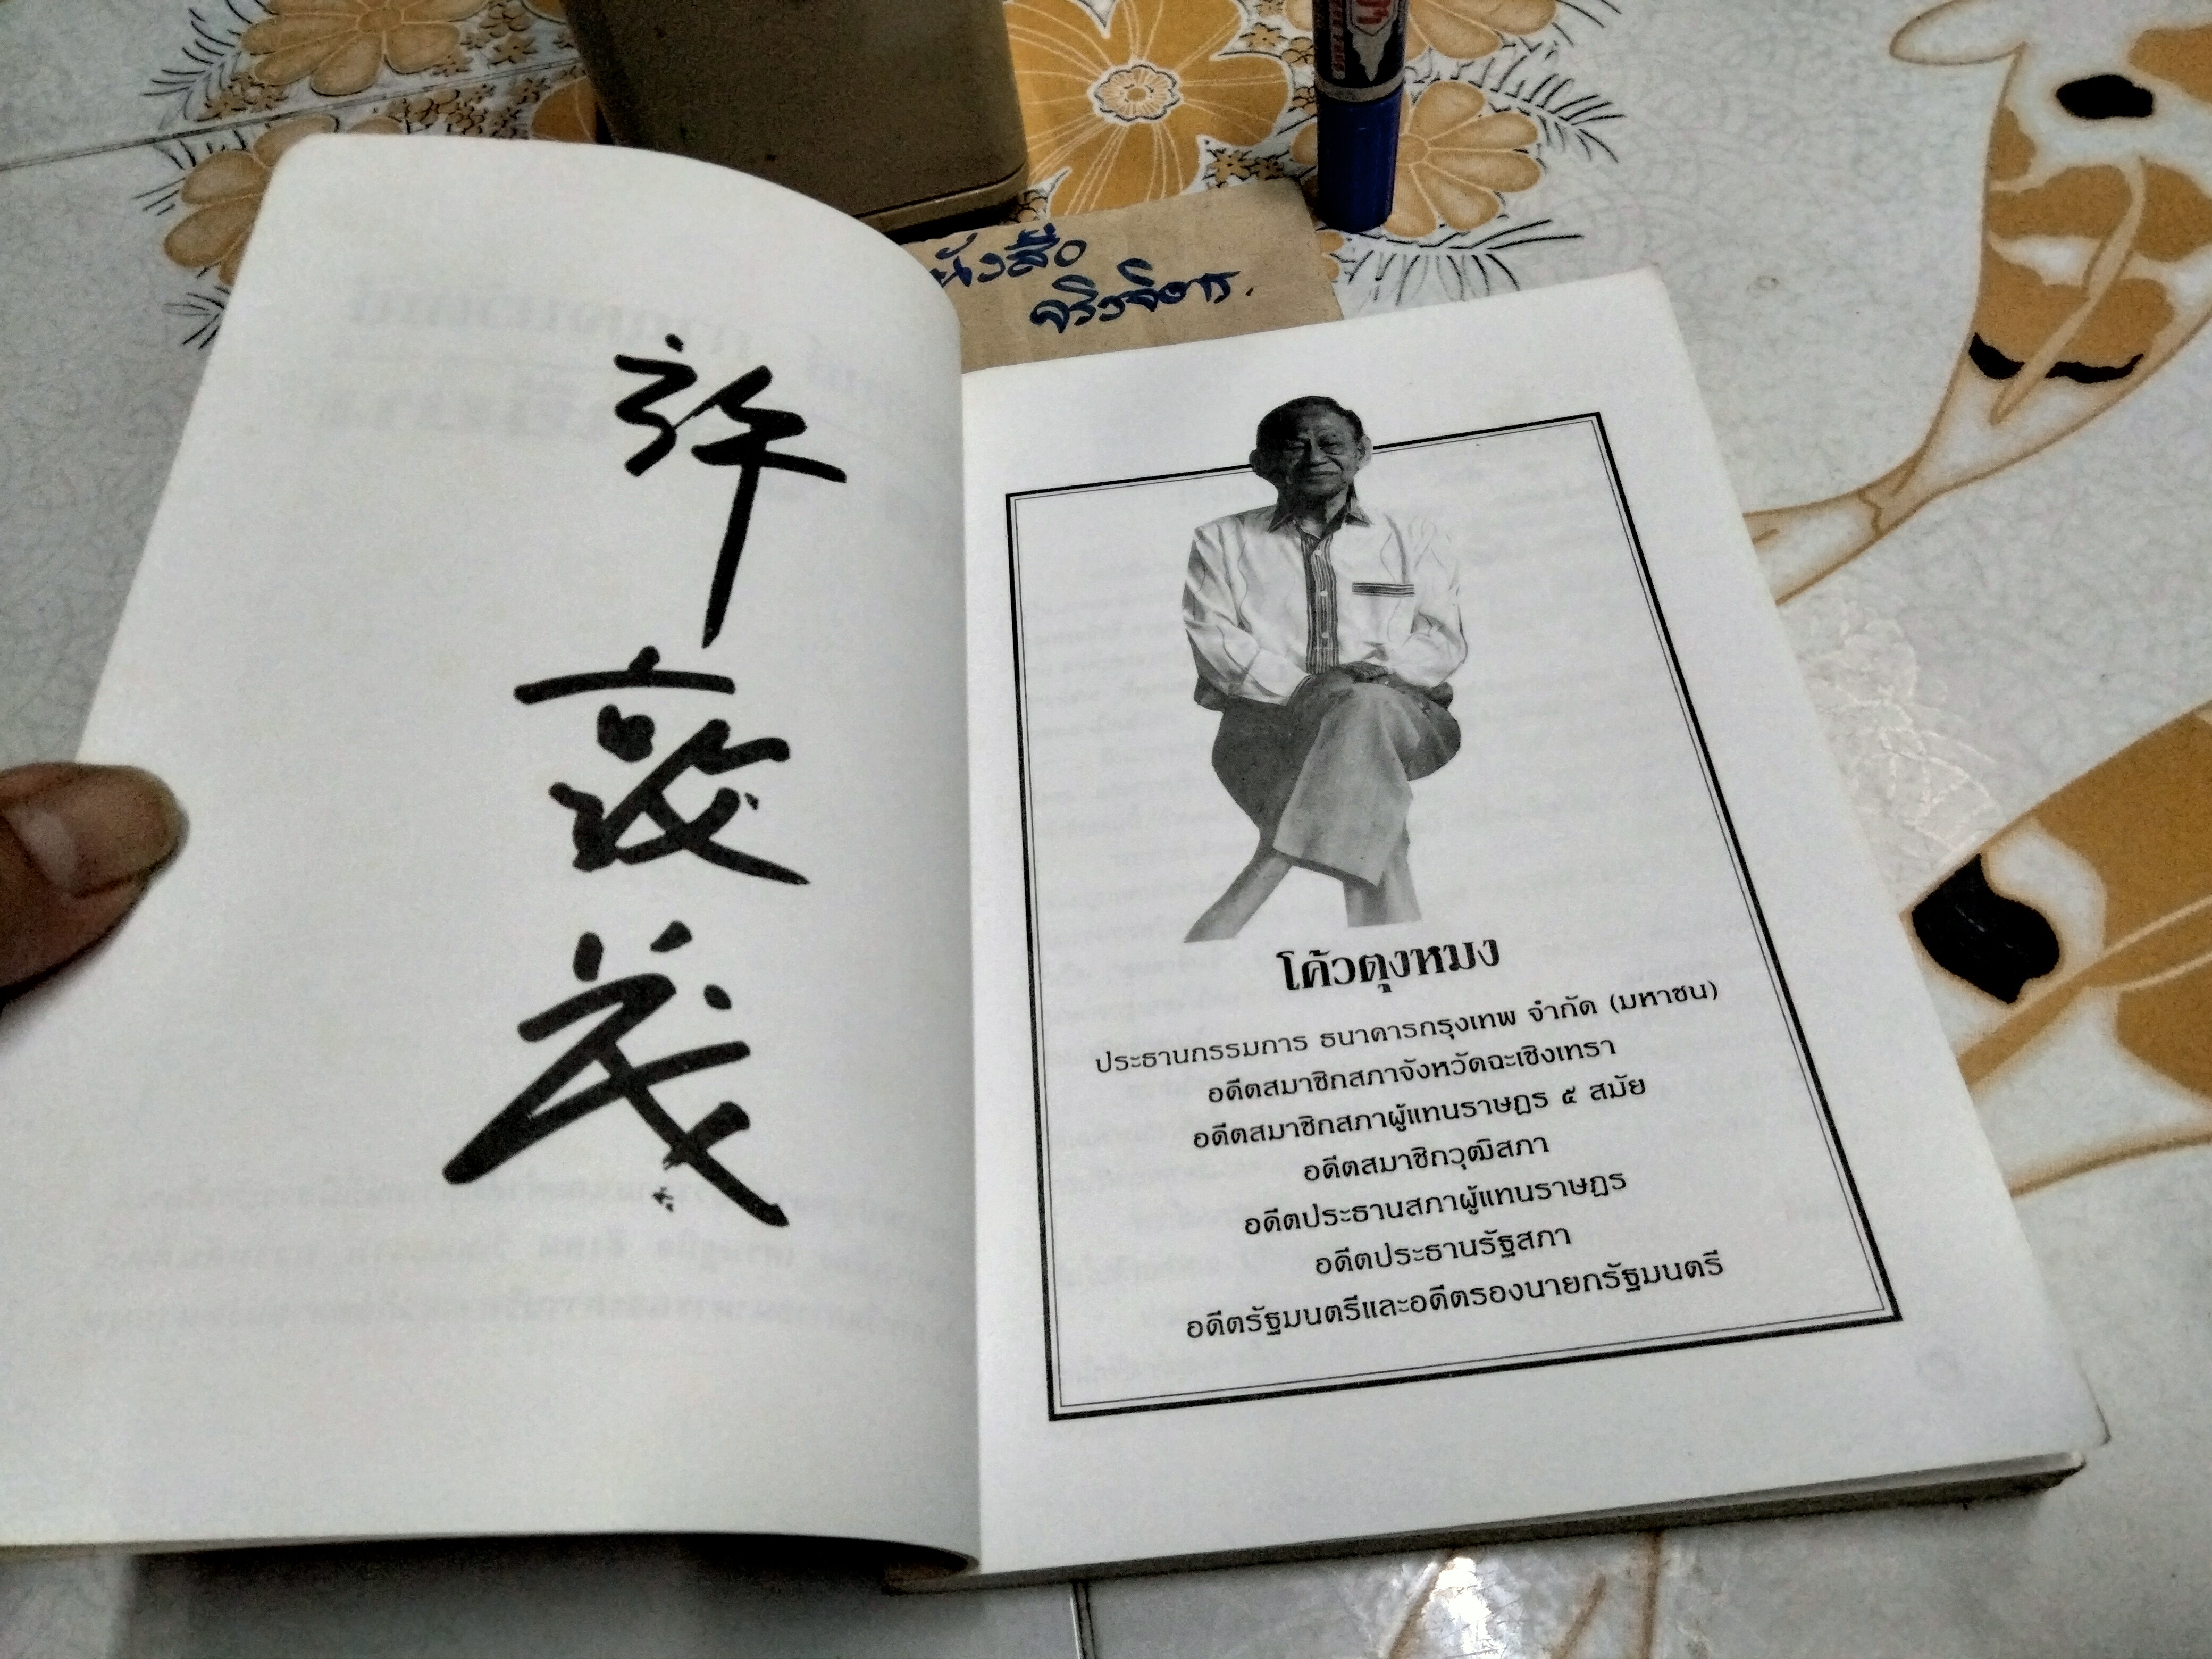 許
敦
茂
หนังสือ
จริงจิตร.
โค้วตุงหมง
ประธานกรรมการ ธนาคารกรุงเทพ จำกัด (มหาชน)
อดีตสมาชิกสภาจังหวัดฉะเชิงเทรา
อดีตสมาชิกสภาผู้แทนราษฎร ๕ สมัย
อดีตสมาชิกวุฒิสภา
อดีตประธานสภาผู้แทนราษฎร
อดีตประธานรัฐสภา
อดีตรัฐมนตรีและอดีตรองนายกรัฐมนตรี